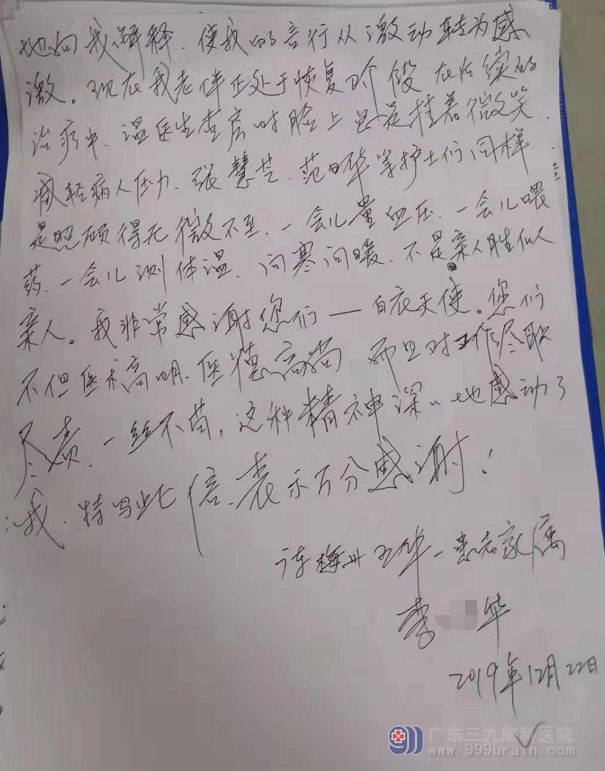 地向我解释，使我的言行从激动转为感
激。现在我老伴正处于恢复阶段，在后续的
治疗中，温医生查房时脸上总是挂着微笑，
减轻病人压力，张慧芝、范日华等护士们同样
是照顾得无微不至，一会儿量血压，一会儿喂
药，一会儿测体温，问寒问暖，不是亲人胜似人
亲人。我非常感谢您们——白衣天使。您们
不但医术高明，医德高尚，而且对工作尽职
尽责，一丝不苟，这种精神深深地感动了
我，特写此信，表示万分感谢！
梅州五华 患者家属
李 华
2019年12月22日
广东三九脑科医院
www.999brain.com